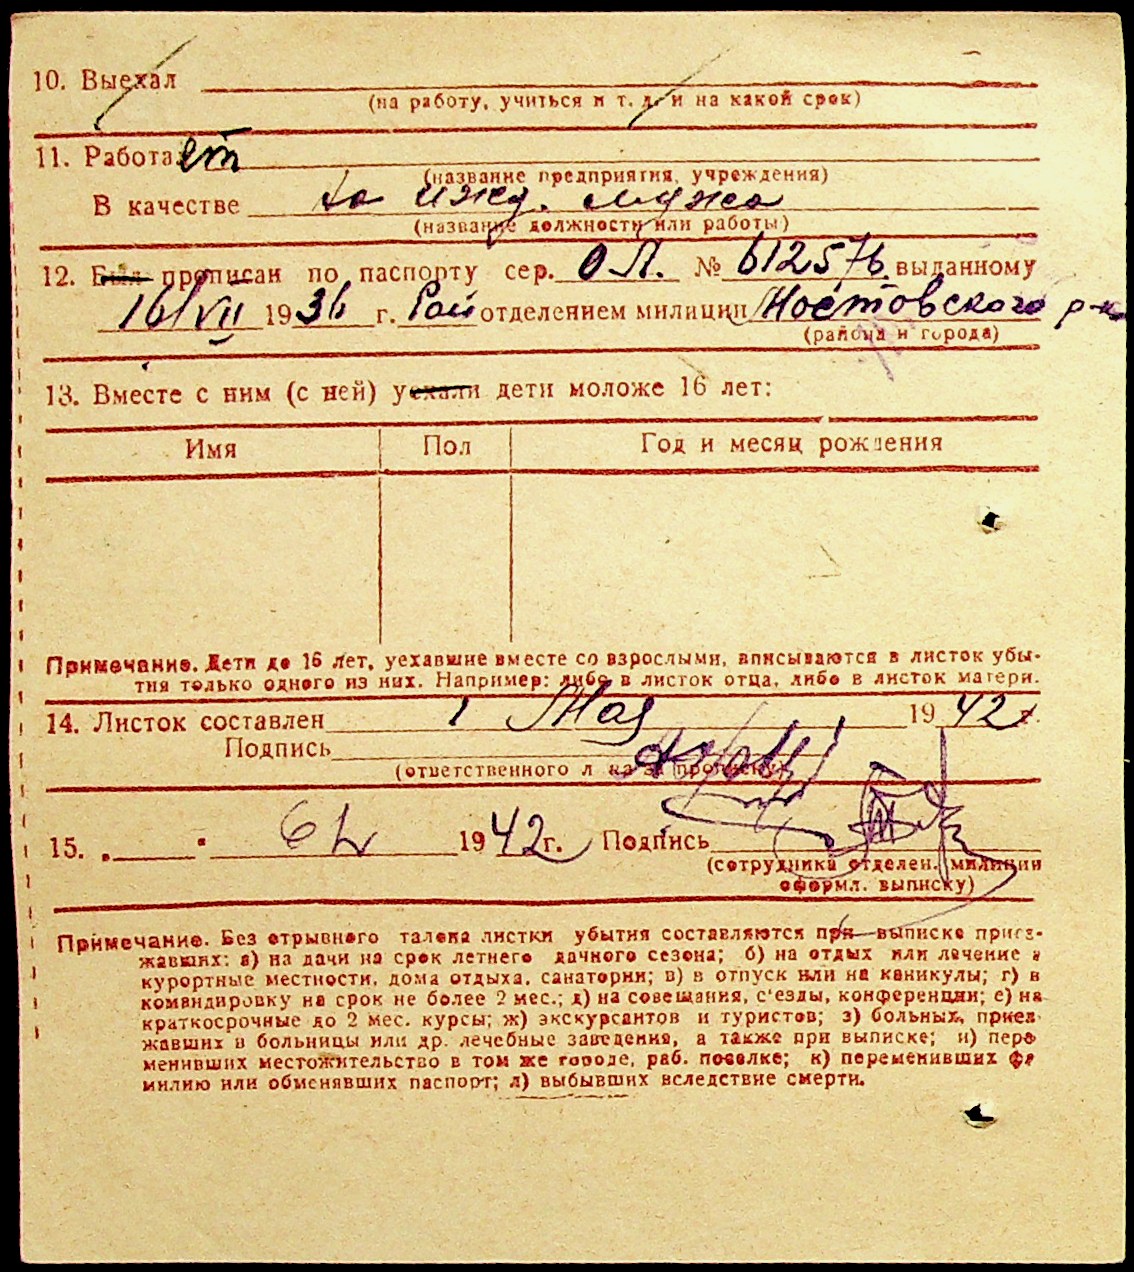 10. Выехал
(на работу, учиться и т. д. и на какой срок)
11. Работает
(название предприятия, учреждения)
В качестве на ижд. мужа
(название должности или работы)
12. Был прописан по паспорту сер. ОЛ. № 612576 выданному
16/VII 1936 г. Рай отделением милиции Мостовского р-на
(района и города)
13. Вместе с ним (с ней) уехали дети моложе 16 лет:
Имя Пол Год и месяц рождения
Примечание. Дети до 16 лет, уехавшие вместе со взрослыми, вписываются в листок убы-
тия только одного из них. Например: либо в листок отца, либо в листок матери.
14. Листок составлен 1 Мая 1942 г.
Подпись
(ответственного л на за прописку)
15. „ " 1942 г. Подпись
(сотрудника отделен. милиции
оформл. выписку)
Примечание. Без отрывного талона листки убытия составляются при выписке приез-
жавших: а) на дачи на срок летнего дачного сезона; б) на отдых или лечение в
курортные местности, дома отдыха, санатории; в) в отпуск или на каникулы; г) в
командировку на срок не более 2 мес.; д) на совещания, с'езды, конференции; е) на
краткосрочные до 2 мес. курсы; ж) экскурсантов и туристов; з) больных, приез-
жавших в больницы или др. лечебные заведения, а также при выписке; и) пере-
менивших местожительство в том же городе, раб. поселке; к) переменивших фа-
милию или обменявших паспорт; л) выбывших вследствие смерти.